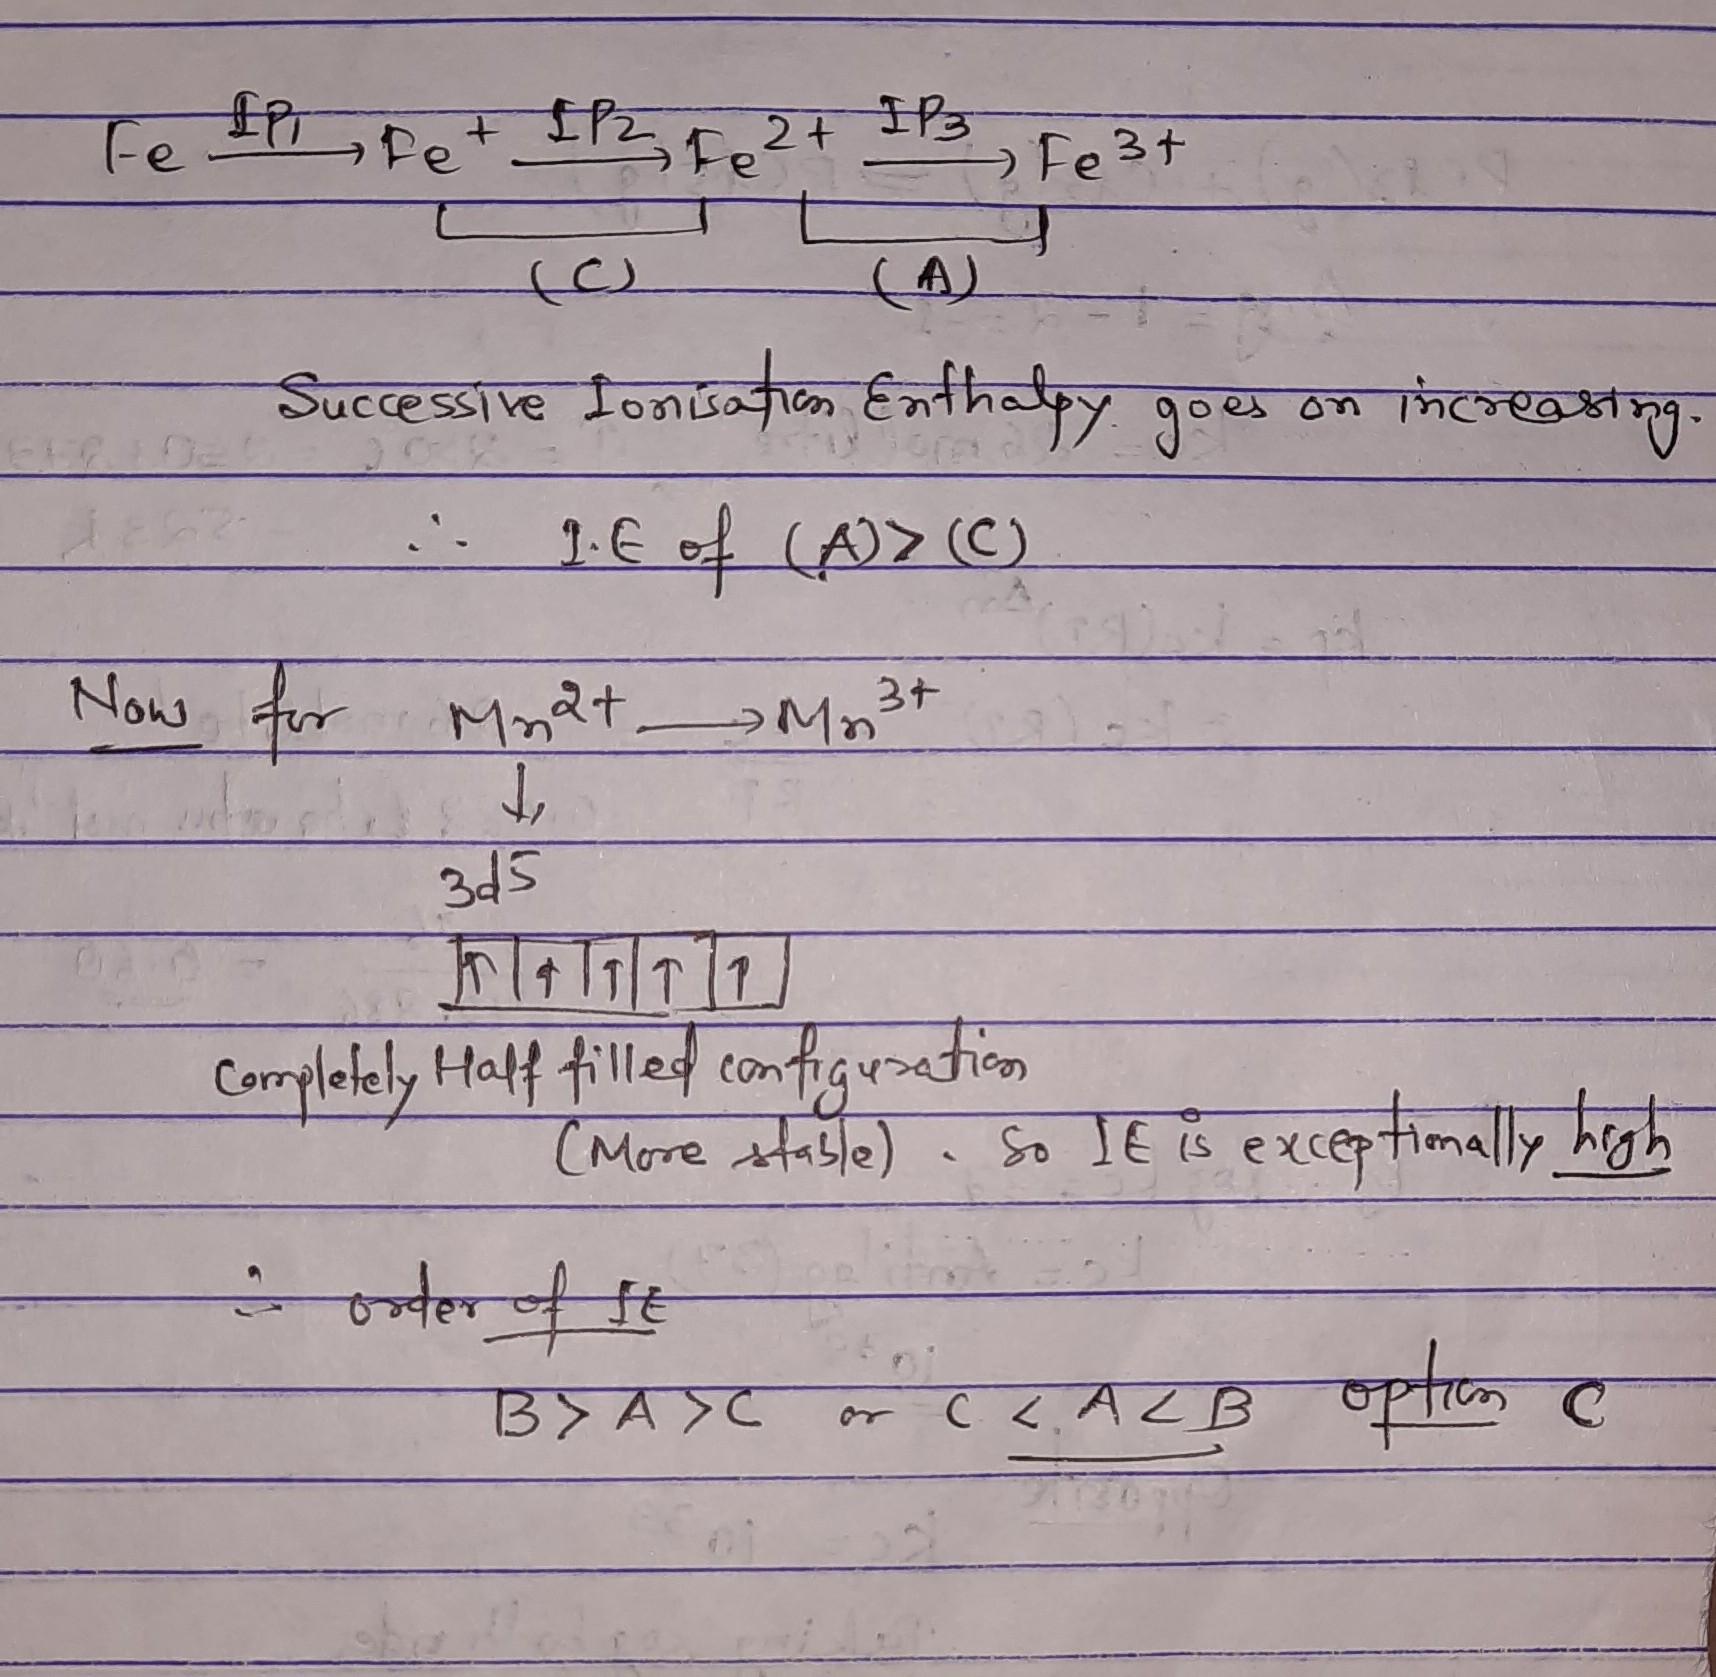 Fe IP1 → Fe+ IP2 → Fe2+ IP3 → Fe3+
(C) (A)
Successive Ionisation Enthalpy goes on increasing.
∴ I.E of (A) > (C)
Now for Mn2+ → Mn3+
↓
3d5
↑ ↑ ↑ ↑ ↑
Completely Half filled configuration
(More stable). So IE is exceptionally high
∴ order of IE
B > A > C or C < A < B option C